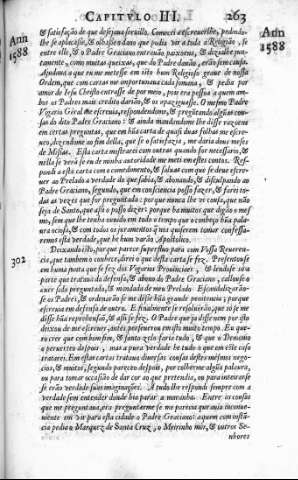 CAPITVLO III. 263
Ann
1588
Ann
1588
& satisfação de que desejava servillo. Comecei a escreverlhe, pedindo-
lhe se aplacasse, & olhasse o dano que podia vir a toda a Religião, se
entre elle, & o Padre Graciano entravão paixoens, & dizialhe pun-
camente, como muitas queixas, que do Padre davão, erão sem causa.
Ajudava a que eu me metesse em isto hum Religioso grave de nossa
Ordem, que com cartas me importunava cada somana, & pedia por
amor de Iesu Christo entrasse de por meyo, pois era pessoa a quem am-
bos os Padres mais credito darião, & os apaziguasse. O mesmo Padre
Vigario Geral me escrevia, respondendome, & preguntando algũas cou-
sas do dito Padre Graciano: & ainda mandandome lhe disse razão
em certas preguntas, que em hũa carta de quasi duas folhas me escre-
veo, dizendome ao fim della, que se o satisfazia, me daria dous meses
de Missas. Esta carta mostrarei com outras quando for necessario, &
nella se verá se eu de minha autoridade me meti em estes contos. Res-
pondi a esta carta com o comedimento, & salvas com que se deve escre-
ver ao Prelado a verdade do que sabia, & abonando, & desculpando ao
Padre Graciano, segundo, que em consciencia posso fazer, & farei to-
das as vezes que for preguntado: porque nunca lhe vi cousa, que não
seja de Santo, que assi o posso dizer; porque ha muitos que digão o mes-
mo, sem que lhe tenha ouvido em todo o tempo que o conheço hũa pala-
vra ociosa, & com todos os juramentos q̃ me quiserem tomar confessa-
remos esta verdade, que he hum varão Apostolico.
302
Deixando isto, por que parece superfluo para com Vossa Reveren-
cia, que tambem o conhece, direi o que desta carta se fez. Presentouse
em hũma junta que se fez dos Vigarios Provinciaes, & lendose só a
parte que tratava da defensa, & abono do Padre Graciano, calouse o
aver sido preguntado, & mandado de meu Prelado. Escandalizarão-
se os Padres, & ordenarão se me dèsse hũa grande penitencia, porque
escrevia em defensa de outro. E finalmente se resolverão, que só se me
désse hũa reprehensaõ, & assi se fez. O Padre que ja disse nem por isso
deixou de me escrever, antes perseverou em isto muito tempo. Eu que-
ro crer que com bom fim, & santo zelo faria tudo, & que o Demonio
o perverteo despois, mas a pura verdade he tudo o que em elle caso
tratarei. Em estas cartas tratava diversas cousas destes mesmos nego-
cios, & muitos, segundo pareceo despois, por colherme algũa palavra,
ou para tomar occasião de dar cor ao que pretendia, ou para inteirar-
se se erão verdade suas imaginações. A tudo lhe respondi sempre com a
verdade sem entender donde hia parar a maranha. Entre as cousas
que me preguntava, era preguntarme se me parecia que avia inconve-
niente em vir para esta cidade o Padre Graciano: a quem com instan-
cia pedia o Marquez de Santa Cruz, o Meirinho mór, & outros Se-
nhores